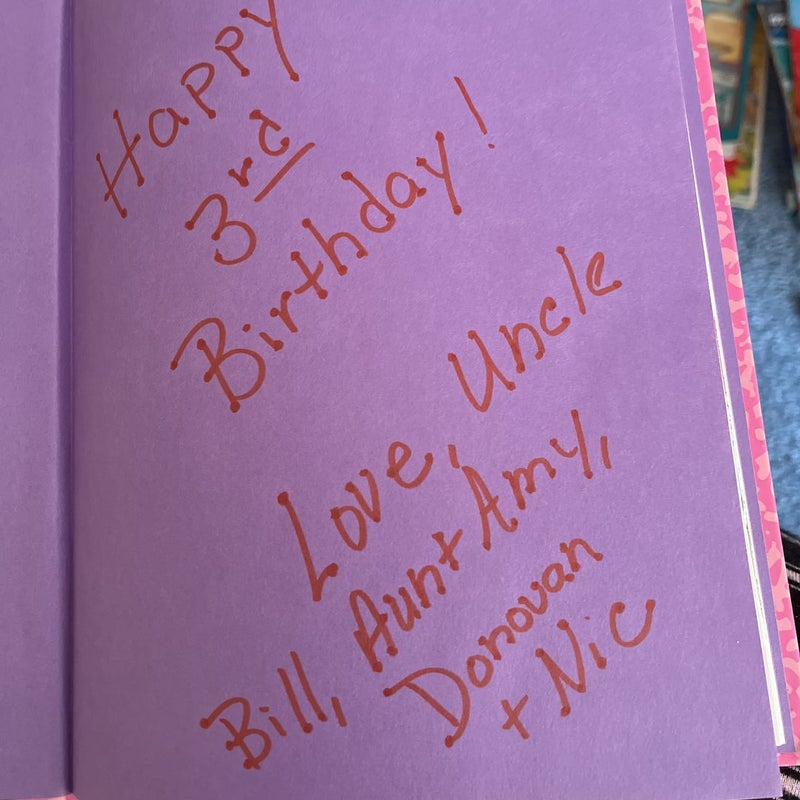 Happy
3rd
Birthday!
Love, Uncle
Bill, Aunt Amy,
Donovan
+ Nic